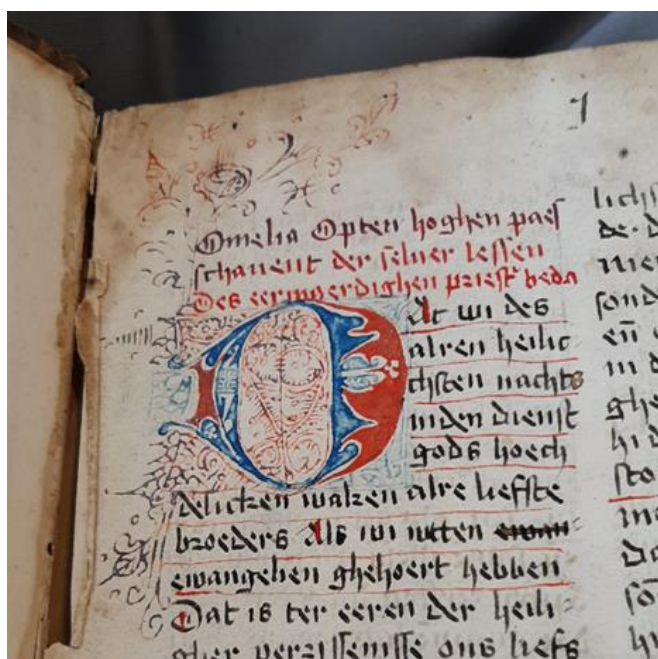 1
Omelia Opten hoghen paes
schauent der seluer lessen
Des eerwaerdighen priest beda
Dat wi des
alren heilic
chsten nachts
inden dienst
gods hoech
delicken waken alre liefste
broeders Als wi wten ewan
ewangelien ghehoert hebben
Dat is ter eeren der heili
gher verrissenisse ons liefs
lichs
de. d
nier
sond
en̄
in d
ghe
hid
sto